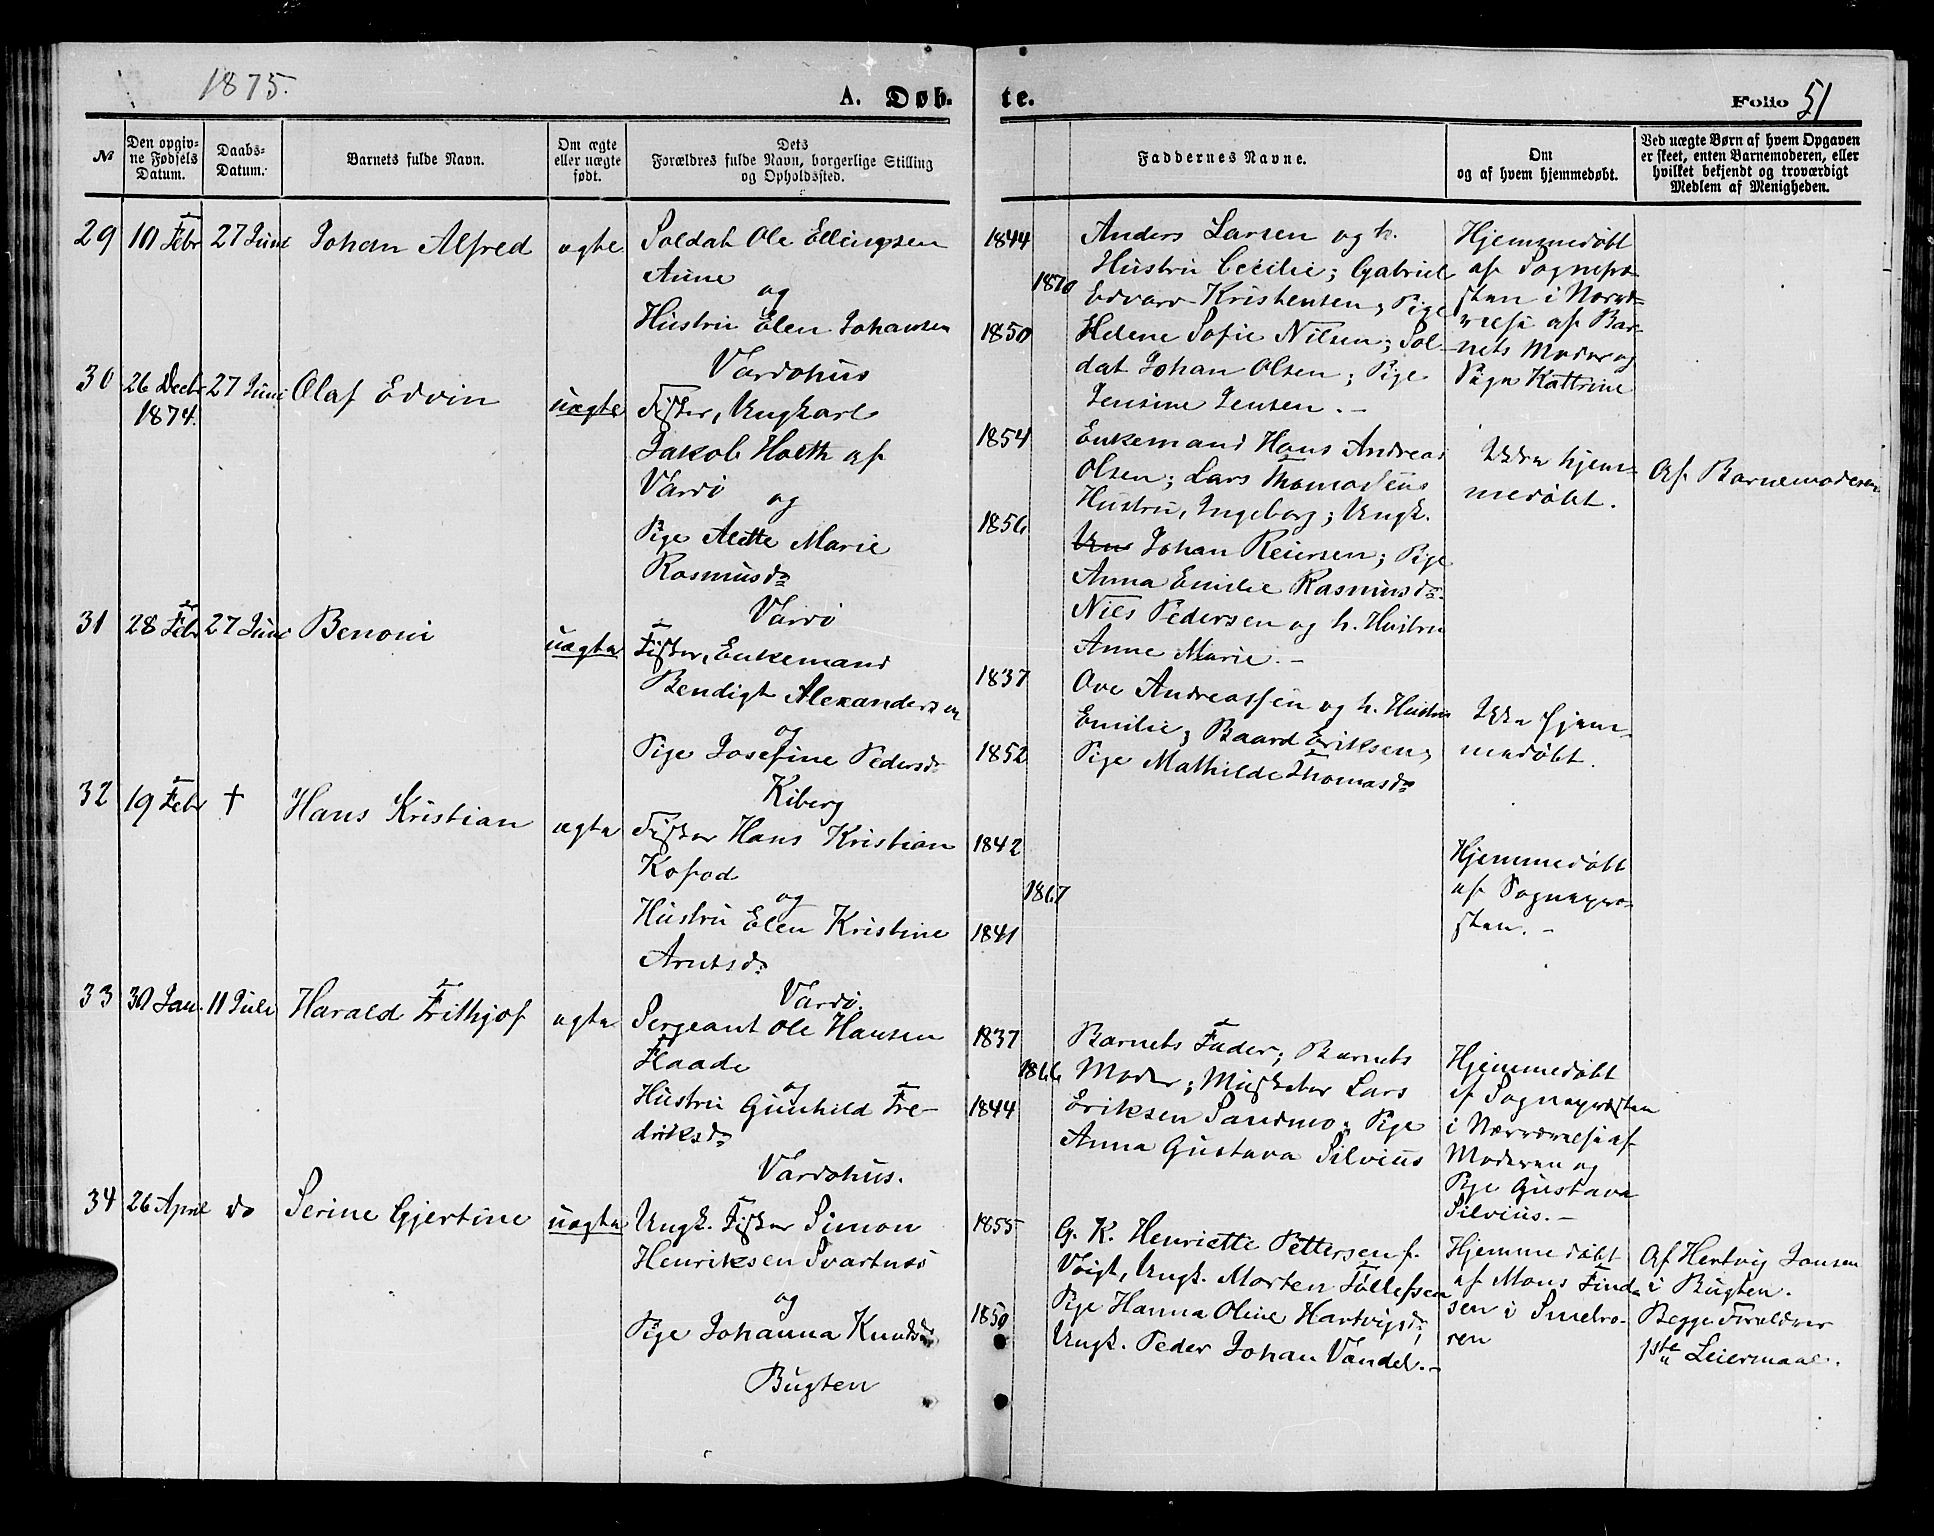 1875.
A. Døb-
te.
Folio 51
№
Den opgiv-
ne Fødsels
Datum.
Daabs-
Datum.
Barnets fulde Navn.
Om ægte
eller uægte
født.
Dets
Forældres fulde Navn, borgerlige Stilling
og Opholdssted.
Faddernes Navne.
Om
og af hvem hjemmedøbt.
Ved uægte Børn af hvem Opgaven
er skeet, enten Barnemoderen, eller
hvilket bekjendt og troværdigt
Medlem af Menigheden.
29
10 Febr
27 Juni
Johan Alfred
ægte
Soldat Ole Ellingsen
Aune
og
Hustru Elen Johansen
Vardøhus
1844
1870
1850
Anders Larsen og h.
Hustru Cecilie; Gabriel
Edvard Kristensen; Pige
Helene Sofie Nilsen; Sol-
dat Johan Olsen; Pige
Jensine Jensen. -
Hjemmedøbt
af Sognepræ-
sten i Nærvæ-
relse af Bar-
nets Moder og
Pige Kattrine
30
26 Decbr
1874.
27 Juni
Olaf Edvin
uægte
Fisker, Ungkarl
Jakob Holth af
Vardø
og
Pige Alette Marie
Rasmusdr
Vardø
1854
1856
Enkemand Hans Andreas
Olsen; Lars Thomassens
Hustru, Ingeborg; Ungk.
Johan Reiersen; Pige
Anna Emilie Rasmusdr.
Nils Pedersen og h. Hustru
Anne Marie. -
Ikke hjem-
medøbt.
Af Barnemoderen
31
28 Febr
27 Juni
Benoni
uægte
Fisker, Enkemand
Bendigt Alexandersen
og
Pige Josefine Pedersdr
Kiberg
1837
1852
Ove Andreassen og h. Hustru
Emilie; Baard Eriksen;
Pige Mathilde Thomasdr
Ikke hjem-
medøbt.
32
19 Febr
†
Hans Kristian
ægte
Fisker Hans Kristian
Kofod
og
Hustru Elen Kristine
Arntsdr
Vardø.
1842
1867
1841
Hjemmedøbt
af Sognepræ-
sten. -
33
30 Jan.
11 Juli
Harald Frithjof
ægte
Sergeant Ole Hansen
Flaade
og
Hustru Gunhild Fre-
driksdr
Vardøhus.
1837
1866
1844
Barnets Fader; Barnets
Moder; Musketer Lars
Eriksen Sandmo; Pige
Anna Gustava Silvius
Hjemmedøbt
af Sognepræsten
i Nærværelse af
Moderen og
Pige Gustava
Silvius. -
34
26 April
do
Serine Gjertine
uægte
Ungk. Fisker Simon
Henriksen Svartnes
og
Pige Johanna Knudsdr
Bugten
1855
1850
G. K. Henriette Pettersen f.
Voigt, Ungk. Morten Tollefsen
Pige Hanna Oline Hartvigsdr;
Ungk. Peder Johan Vandel. -
Hjemmedøbt
af Mons Find-
sen i Smelro-
ren
Af Hertvig Jansen
i Bugten.
Begge Forældrer
1ste Leiermaal.